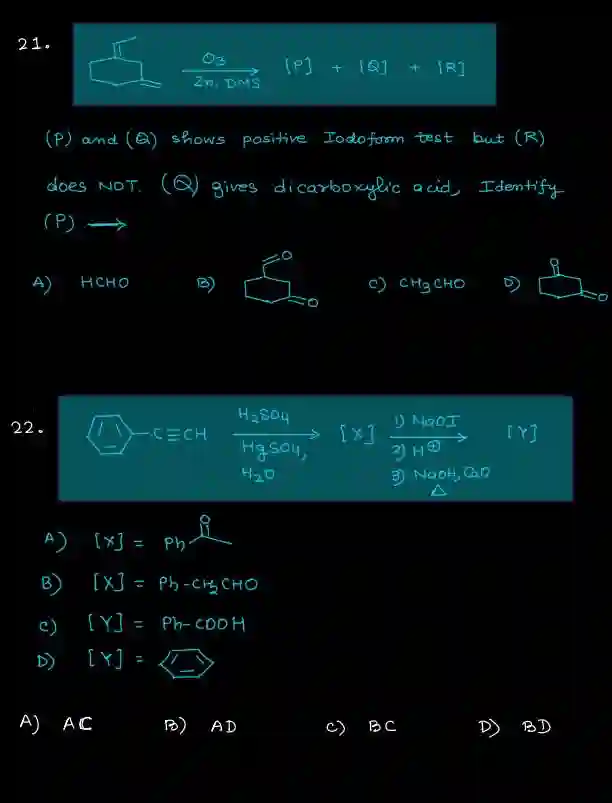 21.
O3
Zn, DMS
[P] + [Q] + [R]
(P) and (Q) shows positive Iodoform test but (R)
does NOT. (Q) gives dicarboxylic acid, Identify
(P) →
A) HCHO
B) O O
C) CH3CHO
D) O O
22.
C≡CH
H2SO4
HgSO4,
H2O
[X]
1) NaOI
2) H⊕
3) NaOH, CaO
Δ
[Y]
A) [X] = Ph O
B) [X] = Ph-CH2CHO
C) [Y] = Ph-COOH
D) [Y] =
A) AC B) AD C) BC D) BD